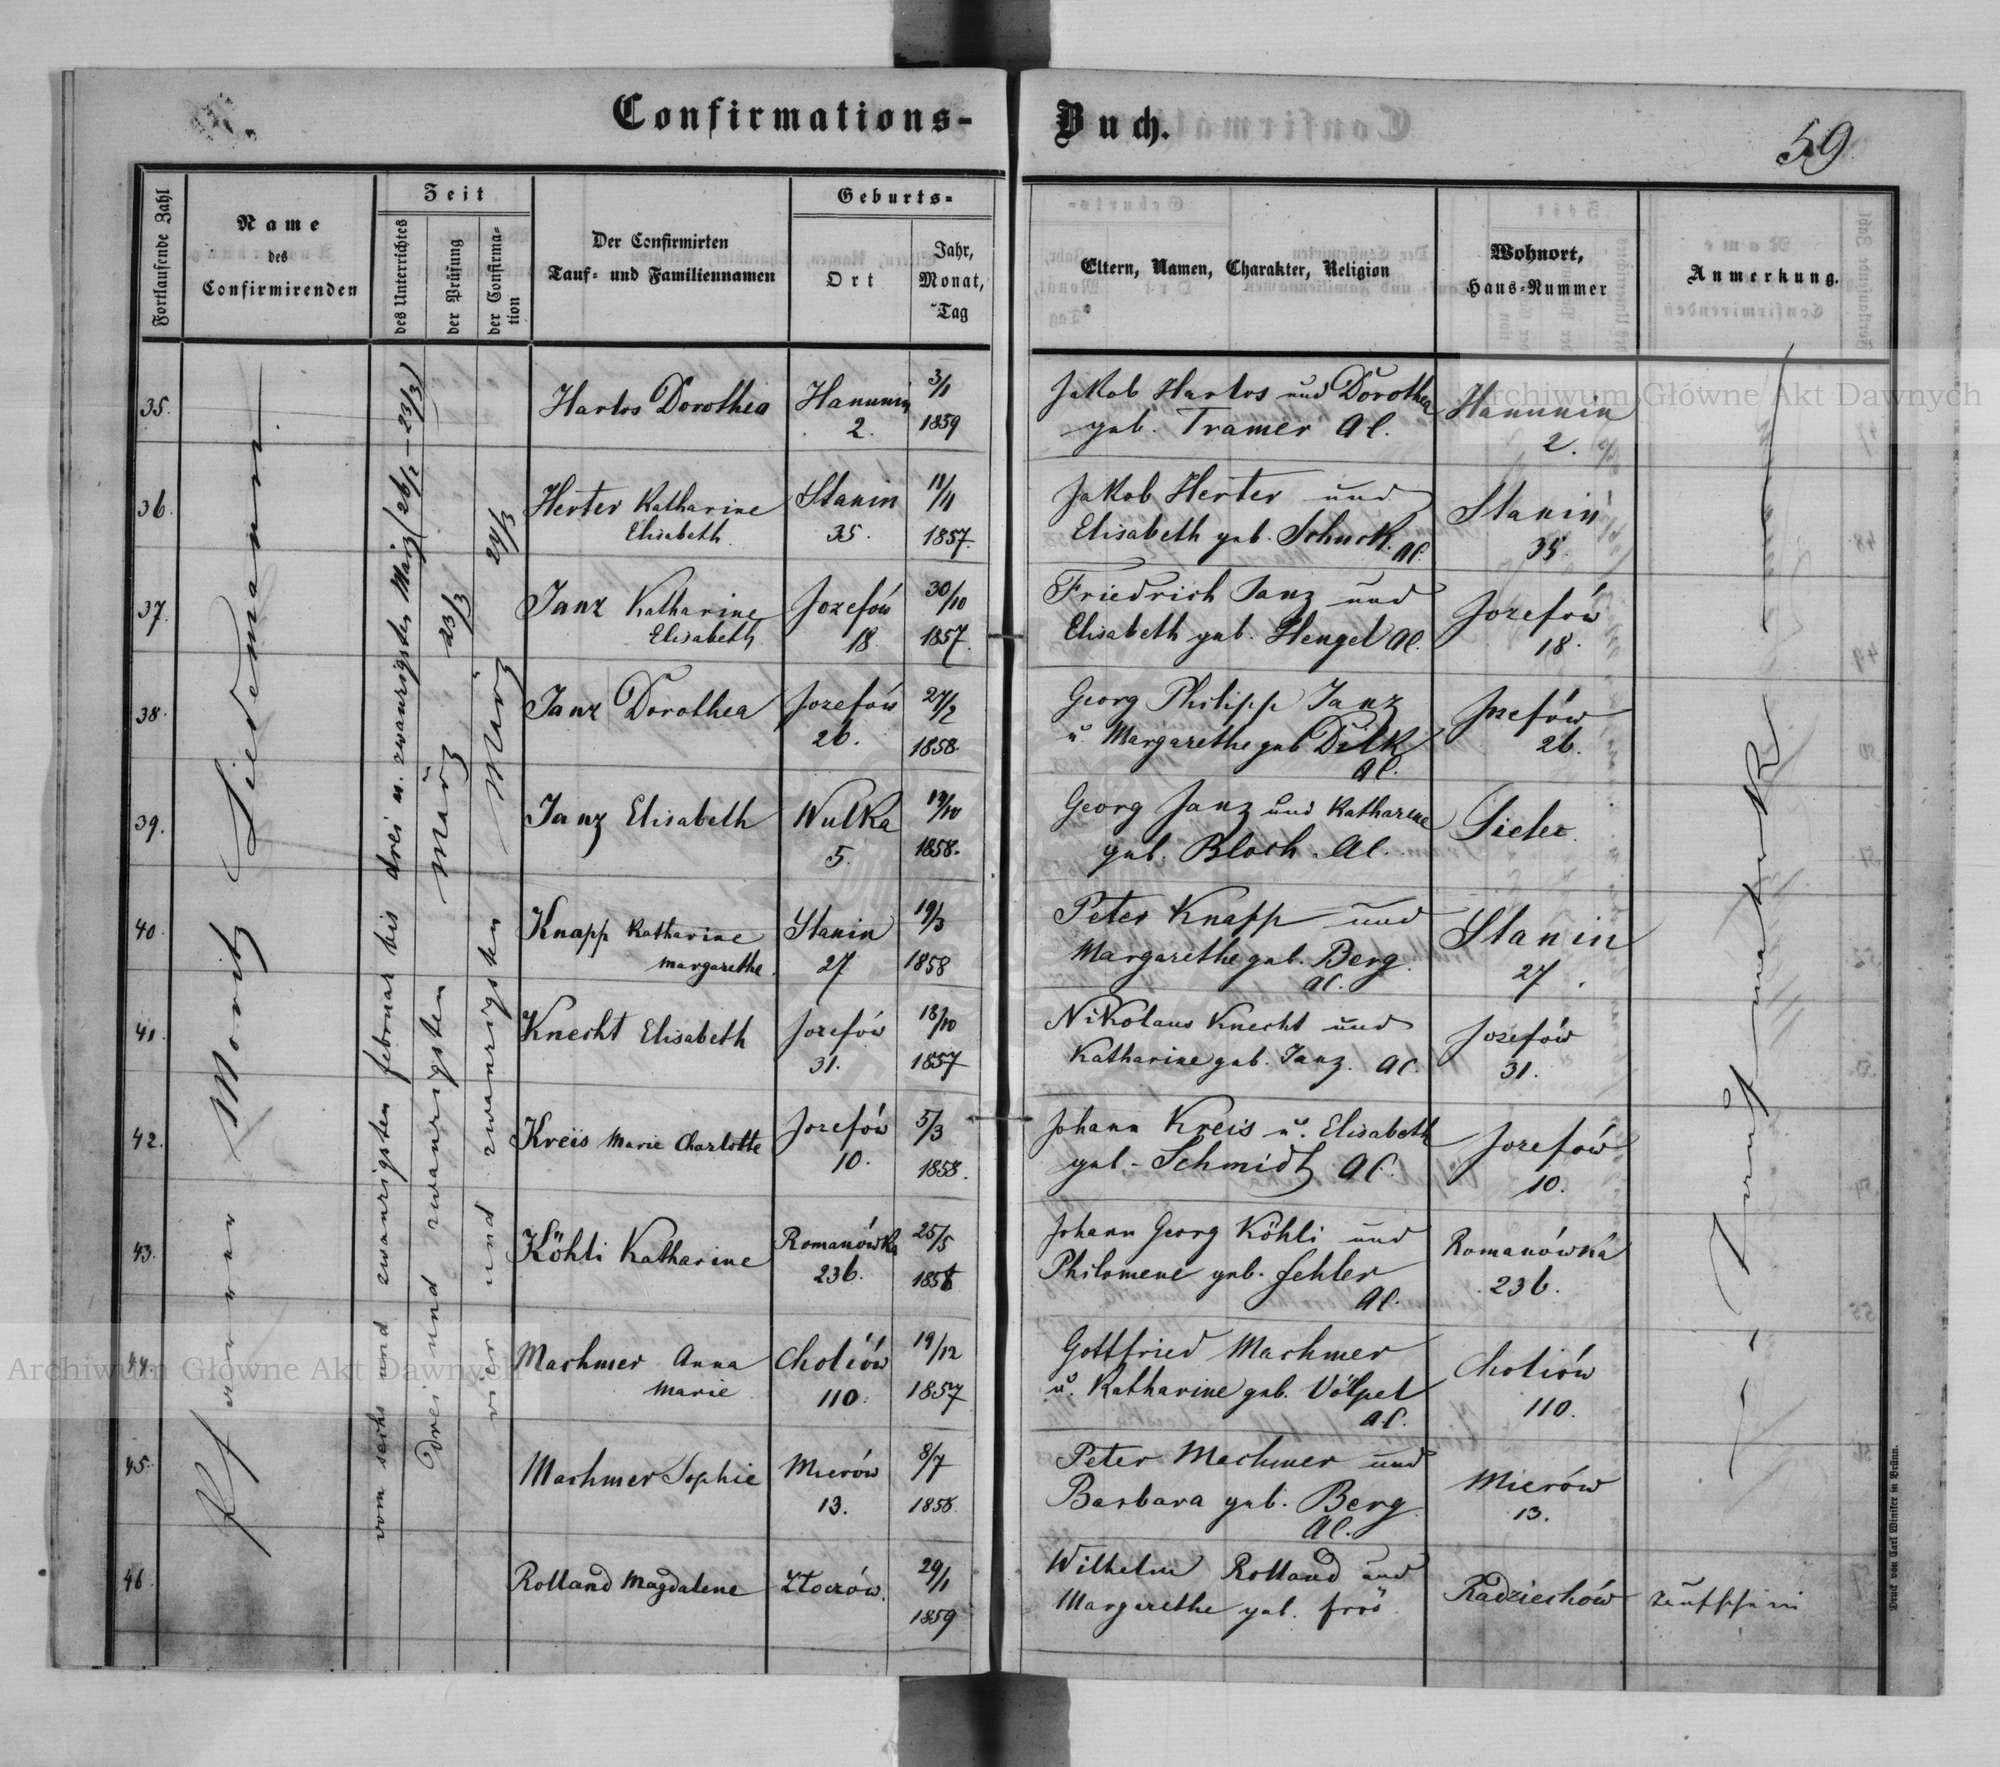 Confirmations-Buch.
59
Fortlaufende Zahl
Name
des
Confirmirenden
Zeit
des Unterrichtes
der Prüfung
der Confirma-
tion
Der Confirmirten
Tauf- und Familiennamen
Geburts-
Ort
Jahr,
Monat,
Tag
Eltern, Namen, Charakter, Religion
Wohnort,
Haus-Nummer
Anmerkung.
Pfarrer Moritz Siedemann
vom sechs und zwanzigsten februar bis drei u. zwanzigsten März (26/2 – 23/3)
Drei und zwanzigsten März 23/3
vier und zwanzigsten März 24/3
35. Hartos Dorothea Hanunin 3/1 Jakob Hartos und Dorothea Hanunin
2. 1859 geb. Tramer AC. 2.
36. Herter Katharine Stanin 11/11 Jakob Herter und Stanin
Elisabeth 35. 1857. Elisabeth geb. Schuck. AC. 35
37. Janz Katharine Jozefów 30/10 Friedrich Janz und Jozefów
Elisabeth 18 1857. Elisabeth geb. Hengel AC. 18.
38. Janz Dorothea Jozefów 27/2 Georg Philipp Janz Jozefów
26. 1858. u. Margarethe geb. Dilk 26.
AC.
39. Janz Elisabeth Wulka 19/10 Georg Janz und Katharine Sielec
5. 1858. geb. Bloch. AC.
40. Knapp Katharine Stanin 19/3 Peter Knapp und Stanin
Margarethe. 27 1858 Margarethe geb. Berg. 27
AC.
41. Knecht Elisabeth Jozefów 18/10 Nikolaus Knecht und Jozefów
31. 1857 Katharine geb. Janz. AC. 31.
42. Kreis Marie Charlotte Jozefów 5/3 Johann Kreis u. Elisabeth Jozefów
10. 1858. geb. Schmidt AC. 10.
43. Köhli Katharine Romanówka 25/5 Johann Georg Köhli und Romanówka
236. 1858 Philomene geb. fehler 236.
AC.
44. Machmer Anna Choliów 19/12 Gottfried Machmer Choliów
Marie 110. 1857 u. Katharine geb. Völpel 110.
AC.
45. Machmer Sophie Mierów 8/7 Peter Machmer und Mierów
13. 1858 Barbara geb. Berg 13.
AC.
46. Rolland Magdalene Złoczów. 29/1 Wilhelm Rolland und Radziechów
1859 Margarethe geb.
Druck von Carl Winiker in Brünn.
Archiwum Główne Akt Dawnych
Archiwum Główne Akt Dawnych